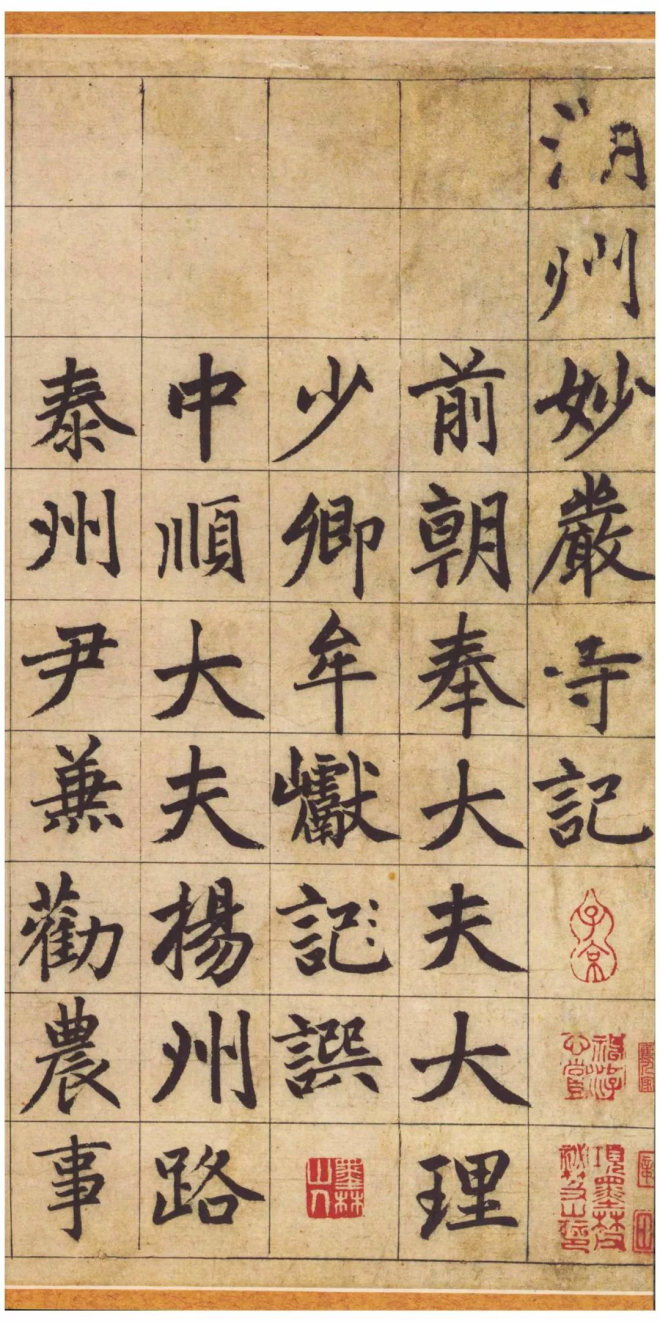 湖州妙嚴寺記
前朝奉大夫大理
少卿牟巘記譔
中順大夫揚州路
泰州尹兼勸農事
子京
墨林山人